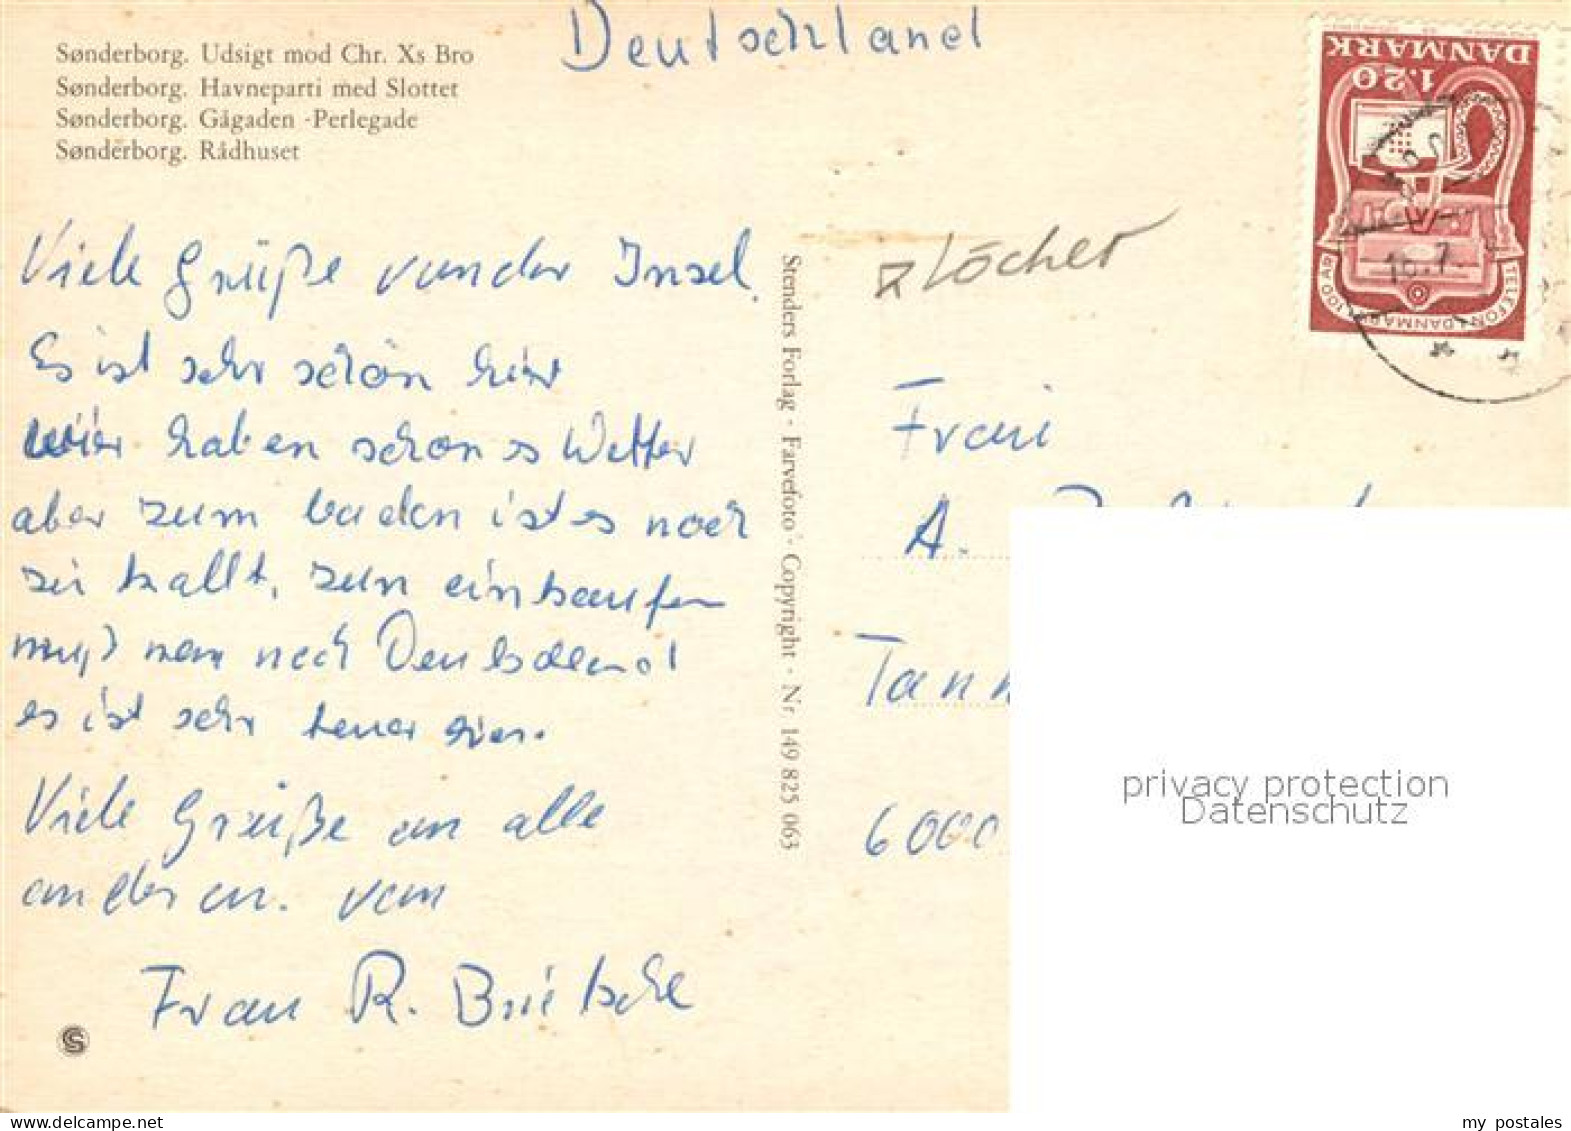 Deutschland
Sønderborg. Udsigt mod Chr. Xs Bro
Sønderborg. Havneparti med Slottet
Sønderborg. Gågaden -Perlegade
Sønderborg. Rådhuset
DANMARK
1.20
TELEFON I DANMARK 100 ÅR
16.7.
Löcher
Viele Grüße von der Insel.
Es ist sehr schön hier
wier haben schönes Wetter
aber zum baden ist es noch
zu kallt, zum einkaufen
muß man nach Deutschland
es ist sehr teuer hier.
Viele Grüße an alle
anderen. von
Frau R.
Stenders Forlag - Farvefoto - Copyright - Nr. 149 825 063
Frau
A.
Tann
6000
privacy protection
Datenschutz
my postales
www.delcampe.net